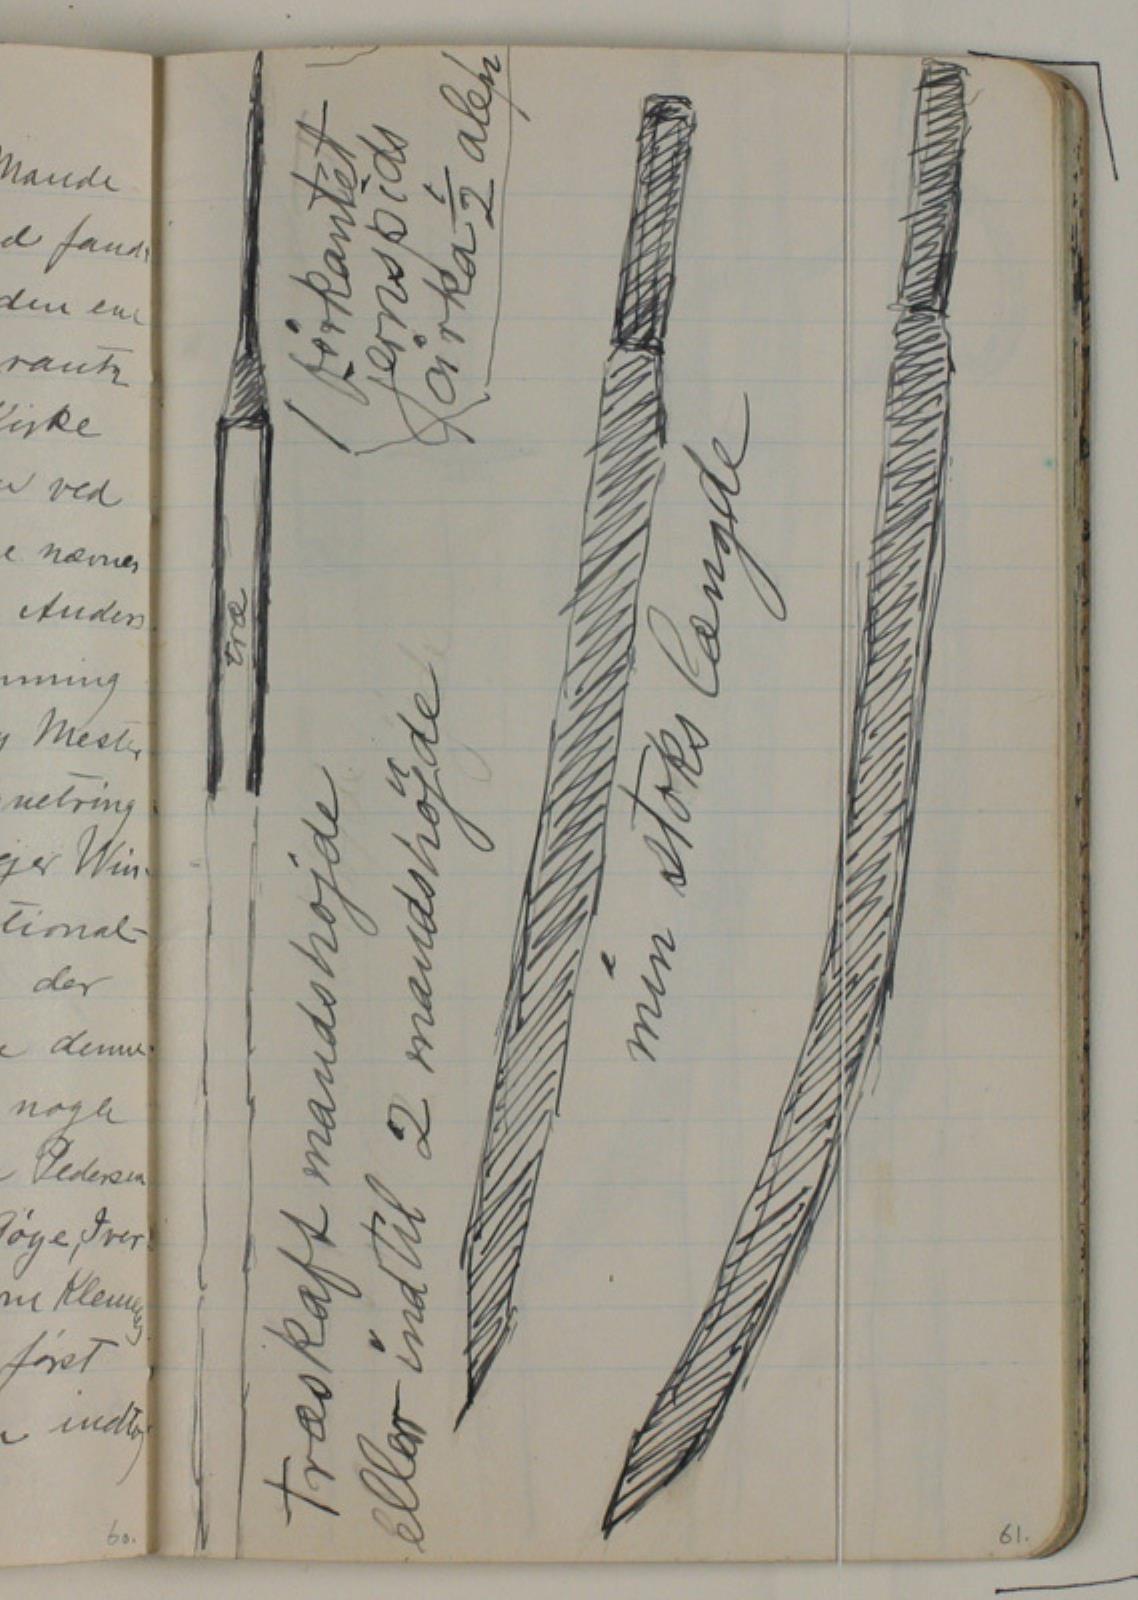 Mande
d fand
den ene
rantz
Kirke
ved
e nævnes
Anders
mning
Mester
netring
ejer Win-
tional-
der
denne
nogle
Pedersen
Iver
Klemen
først
indtog
60.
firkantet
jernspids
cirka ½ alen
træ
træskaft mandshøjde
eller indtil 2 mandshøjde
min stoks længde
61.